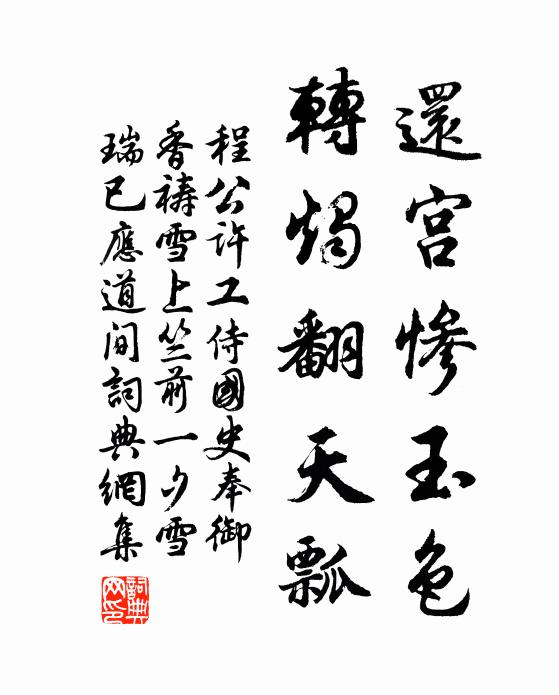 還宮慘玉色
轉燭翻天瓢
程公許工侍國史奉御
香禱雪上竺前一夕雪
瑞已應道間詞典網集
詞典
网印